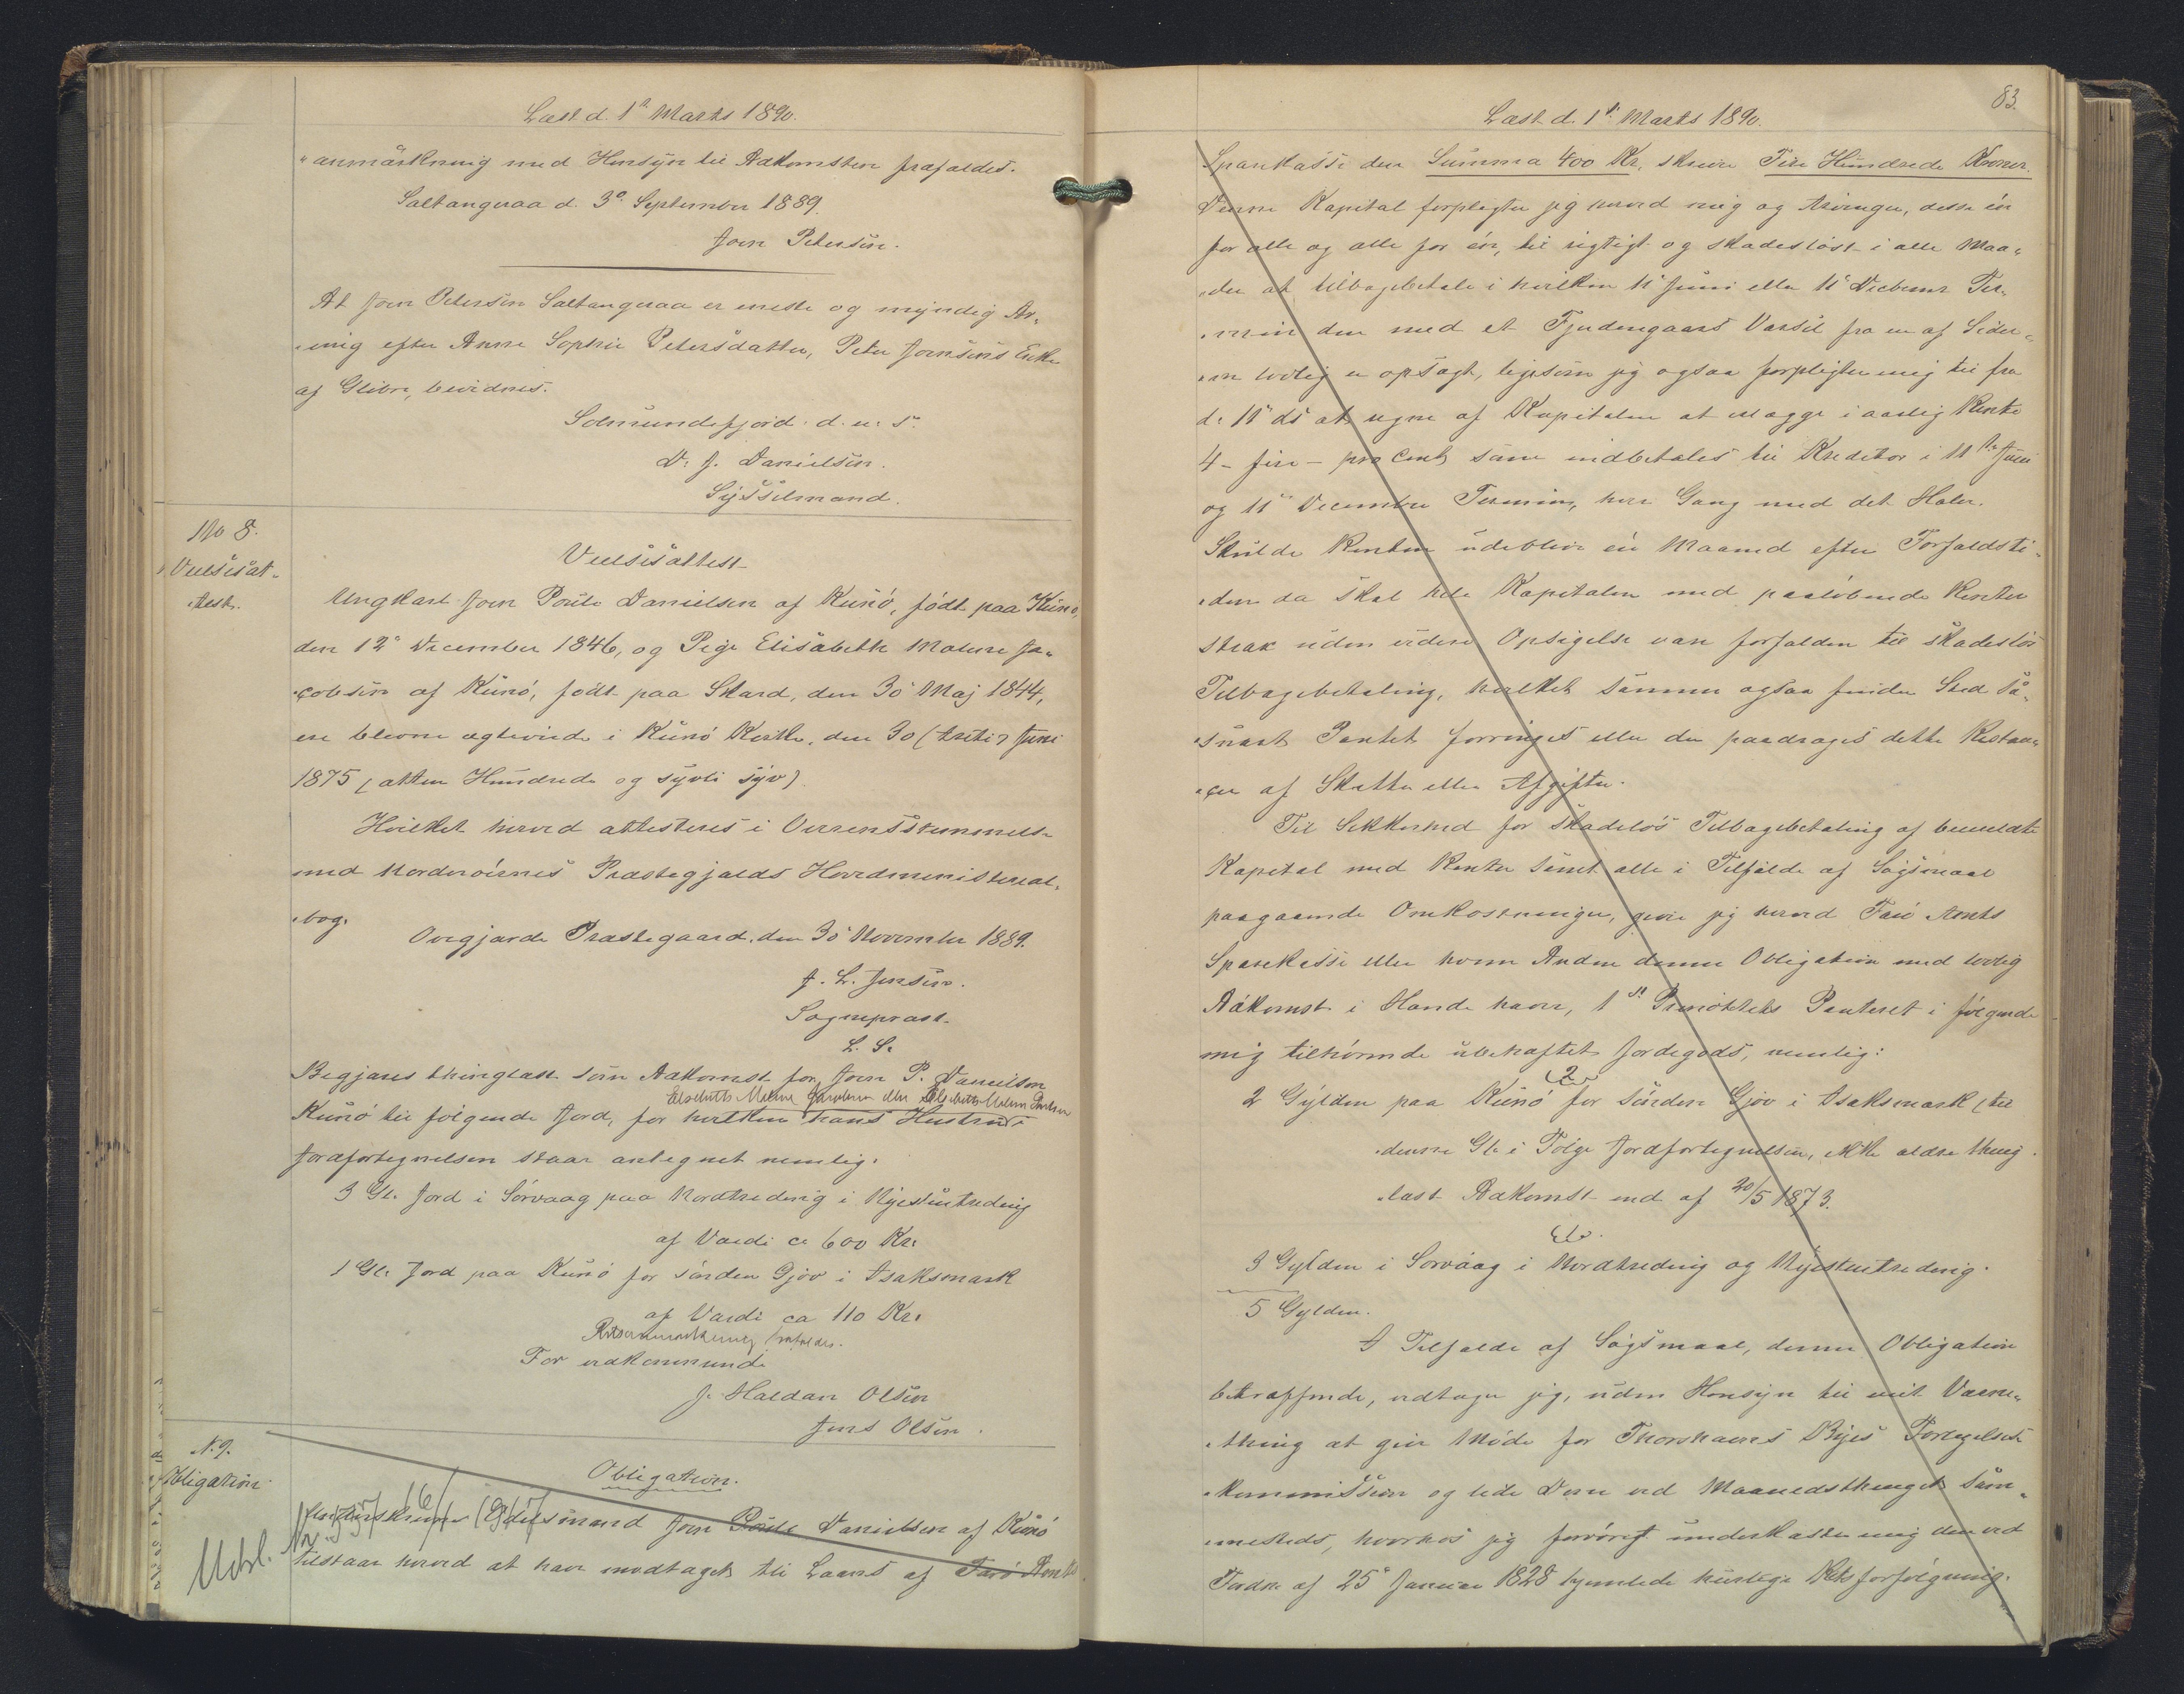 Læst d. 1ste Marts 1890.
"anmärkning med Hensyn til Adkomsten frafaldes.
Saltangeraa d. 3die September 1889.
Joen Petersen.
At Joen Petersen Saltangeraa er eneste og myndig Ar„
„ving efter Anne Sophie Petersdatter, Peter Joensens Enke
af Glibre, bevidnes.
Solmundefjord d. u. s.
D. J. Danielsen.
Sysselmand.
No 8.
Vielsesat„
„test.
Vielsesattest
Ungkarl Joen Poule Danielsen af Kunö, født paa Kunö,
den 12te December 1846, og Pige Elisabeth Malene Ja„
„cobsen af Kunö, født paa Skard, den 30 Maj 1844,
ere blevne ægteviede i Kunö Kirke, den 30 (treti) Juni
1875 (atten Hundrede og syvti syv)
Hvilket herved attesteres i Overensstemmelse
med Norderöernes Præstegjælds Hovedministerial„
„bog.
Qvegjærde Præstegaard, den 30 November 1889.
J. L. Jensen.
Sognepræst.
L. S.
Begjæres thinglæst som Adkomst for Joen P. Danielsen
Elsebeth Malene Jacobsen eller Elsebeth Malene
Kunö til følgende Jord, for hvilken hans Hustru i
Jordfortegnelsen staar antegnet nemlig:
3 Gl. Jord i Sörvaag paa Nordtreding i Nyestuetreding
af Værdi ca 600 Kr.
1 Gl. Jord paa Kunö for sönden Gjov i Isaksmark
af Værdi ca 110 Kr.
Retsanmærkning frafaldes.
For vedkommende
J. Haldan Olsen
Jens Olsen.
N. 9.
Obligation
Udsl.
Obligation.
Joen Poule Danielsen af Kunö
tilstaar herved at have modtaget til Laans af Farö Amts
83.
Læst d. 1ste Marts 1890.
Sparekasse den Summa 400 Kr, skriver Fire Hundrede Kroner.
Denne Kapital forpligter jeg herved mig og Arvinger, desse én
for alle og alle for én, til rigtigt og skadeslöst i alle Maa„
„der at tilbagebetale i hvilken 11te Juni eller 11te Decbember Ter„
„min den med et Fjerdingaars Varsel fra en af Sider„
„ne lovlig er opsagt, ligesom jeg ogsaa forpligter mig til fra
d. 11te ds at regne af Kapitalen at erlægge i aarlig Rente
4 - fire - procent som indbetales til Kreditor i 11te Juni
og 11te December Termin, hver Gang med det Halve.
Skulde Renten udeblive én Maaned efter Forfaldsti„
„den da skal hele Kapitalen med paalöbende Renter
strax uden videre Opsigelse være forfalden til skadeslös
Tilbagebetaling, hvilket sammen ogsaa finder Sted så„
„snart Pantet forringes eller der paadrages dette Restan„
„cer af Skatter eller Afgifter.
Til Sikkerhed for skadeslös Tilbagebetaling af bemeldte
Kapital med Renter samt alle i Tilfælde af Sögsmaal
paagaaende Omkostninger, giver jeg herved Farö Amts
Sparekasse eller hvem Anden denne Obligation med lovlig
Adkomst i Hænde haver, 1ste Prioritets Panteret i fölgende
mig tilhörende ubehæftet Jordegods, nemlig:
2
2 Gylden paa Kunö for Sönden Gjov i Isaksmark (til
denne Gl. i Fölge Jordfortegnelsen, ikke ældre thing
„læst Adkomst end af 20/5 1873.
3 Gylden i Sorvaag i Nordtreding og Nyestuetreding.
5 Gylden.
I Tilfælde af Sögsmaal, denne Obligation
betræffende, vedtager jeg, uden Hensyn til mit Værne„
„thing at give Möde for Thorshavns Byes Forligelses
„kommission og lide Dom ved Maanedsthinget sam„
„mesteds, hvorhos jeg forövrigt underkaster mig den ved
Frdn. af 25de Januar 1828 hjemlede hurtige Retsforfölgning.